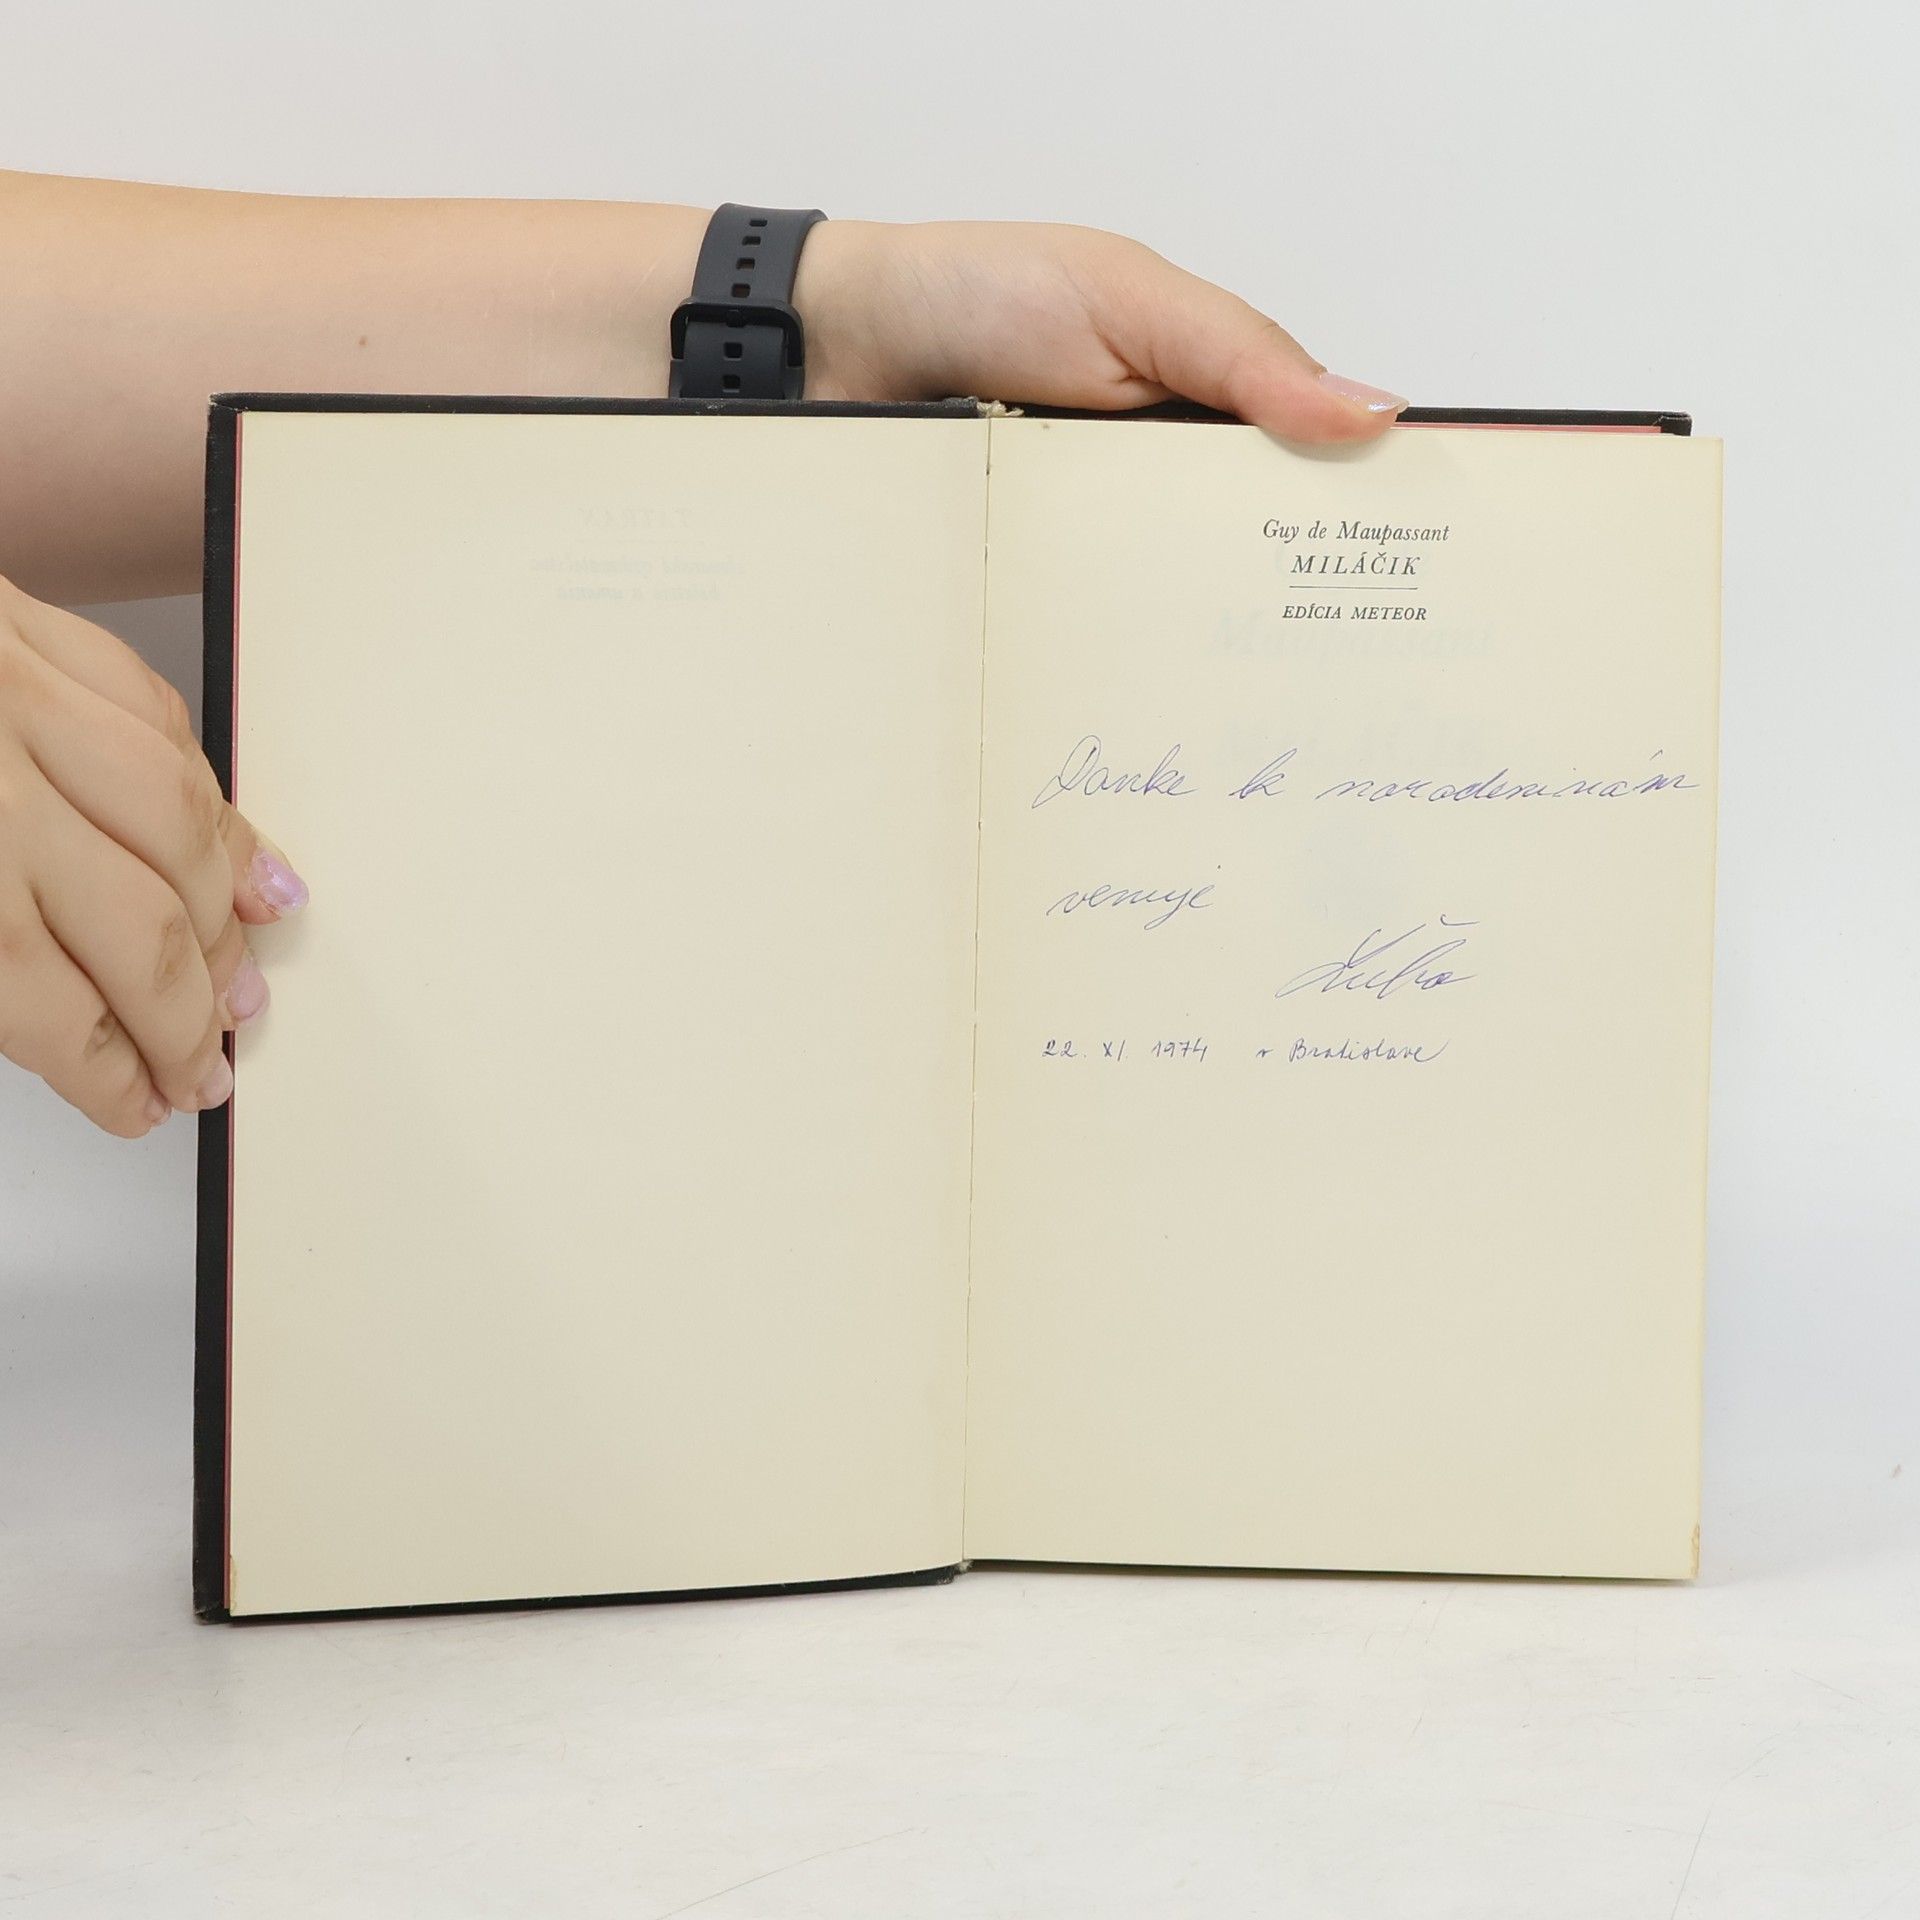 Guy de Maupassant
MILÁČIK
EDÍCIA METEOR
Danke k narodeninám
venuje
Ľubo
22. XI. 1974 v Bratislave
TATRAN